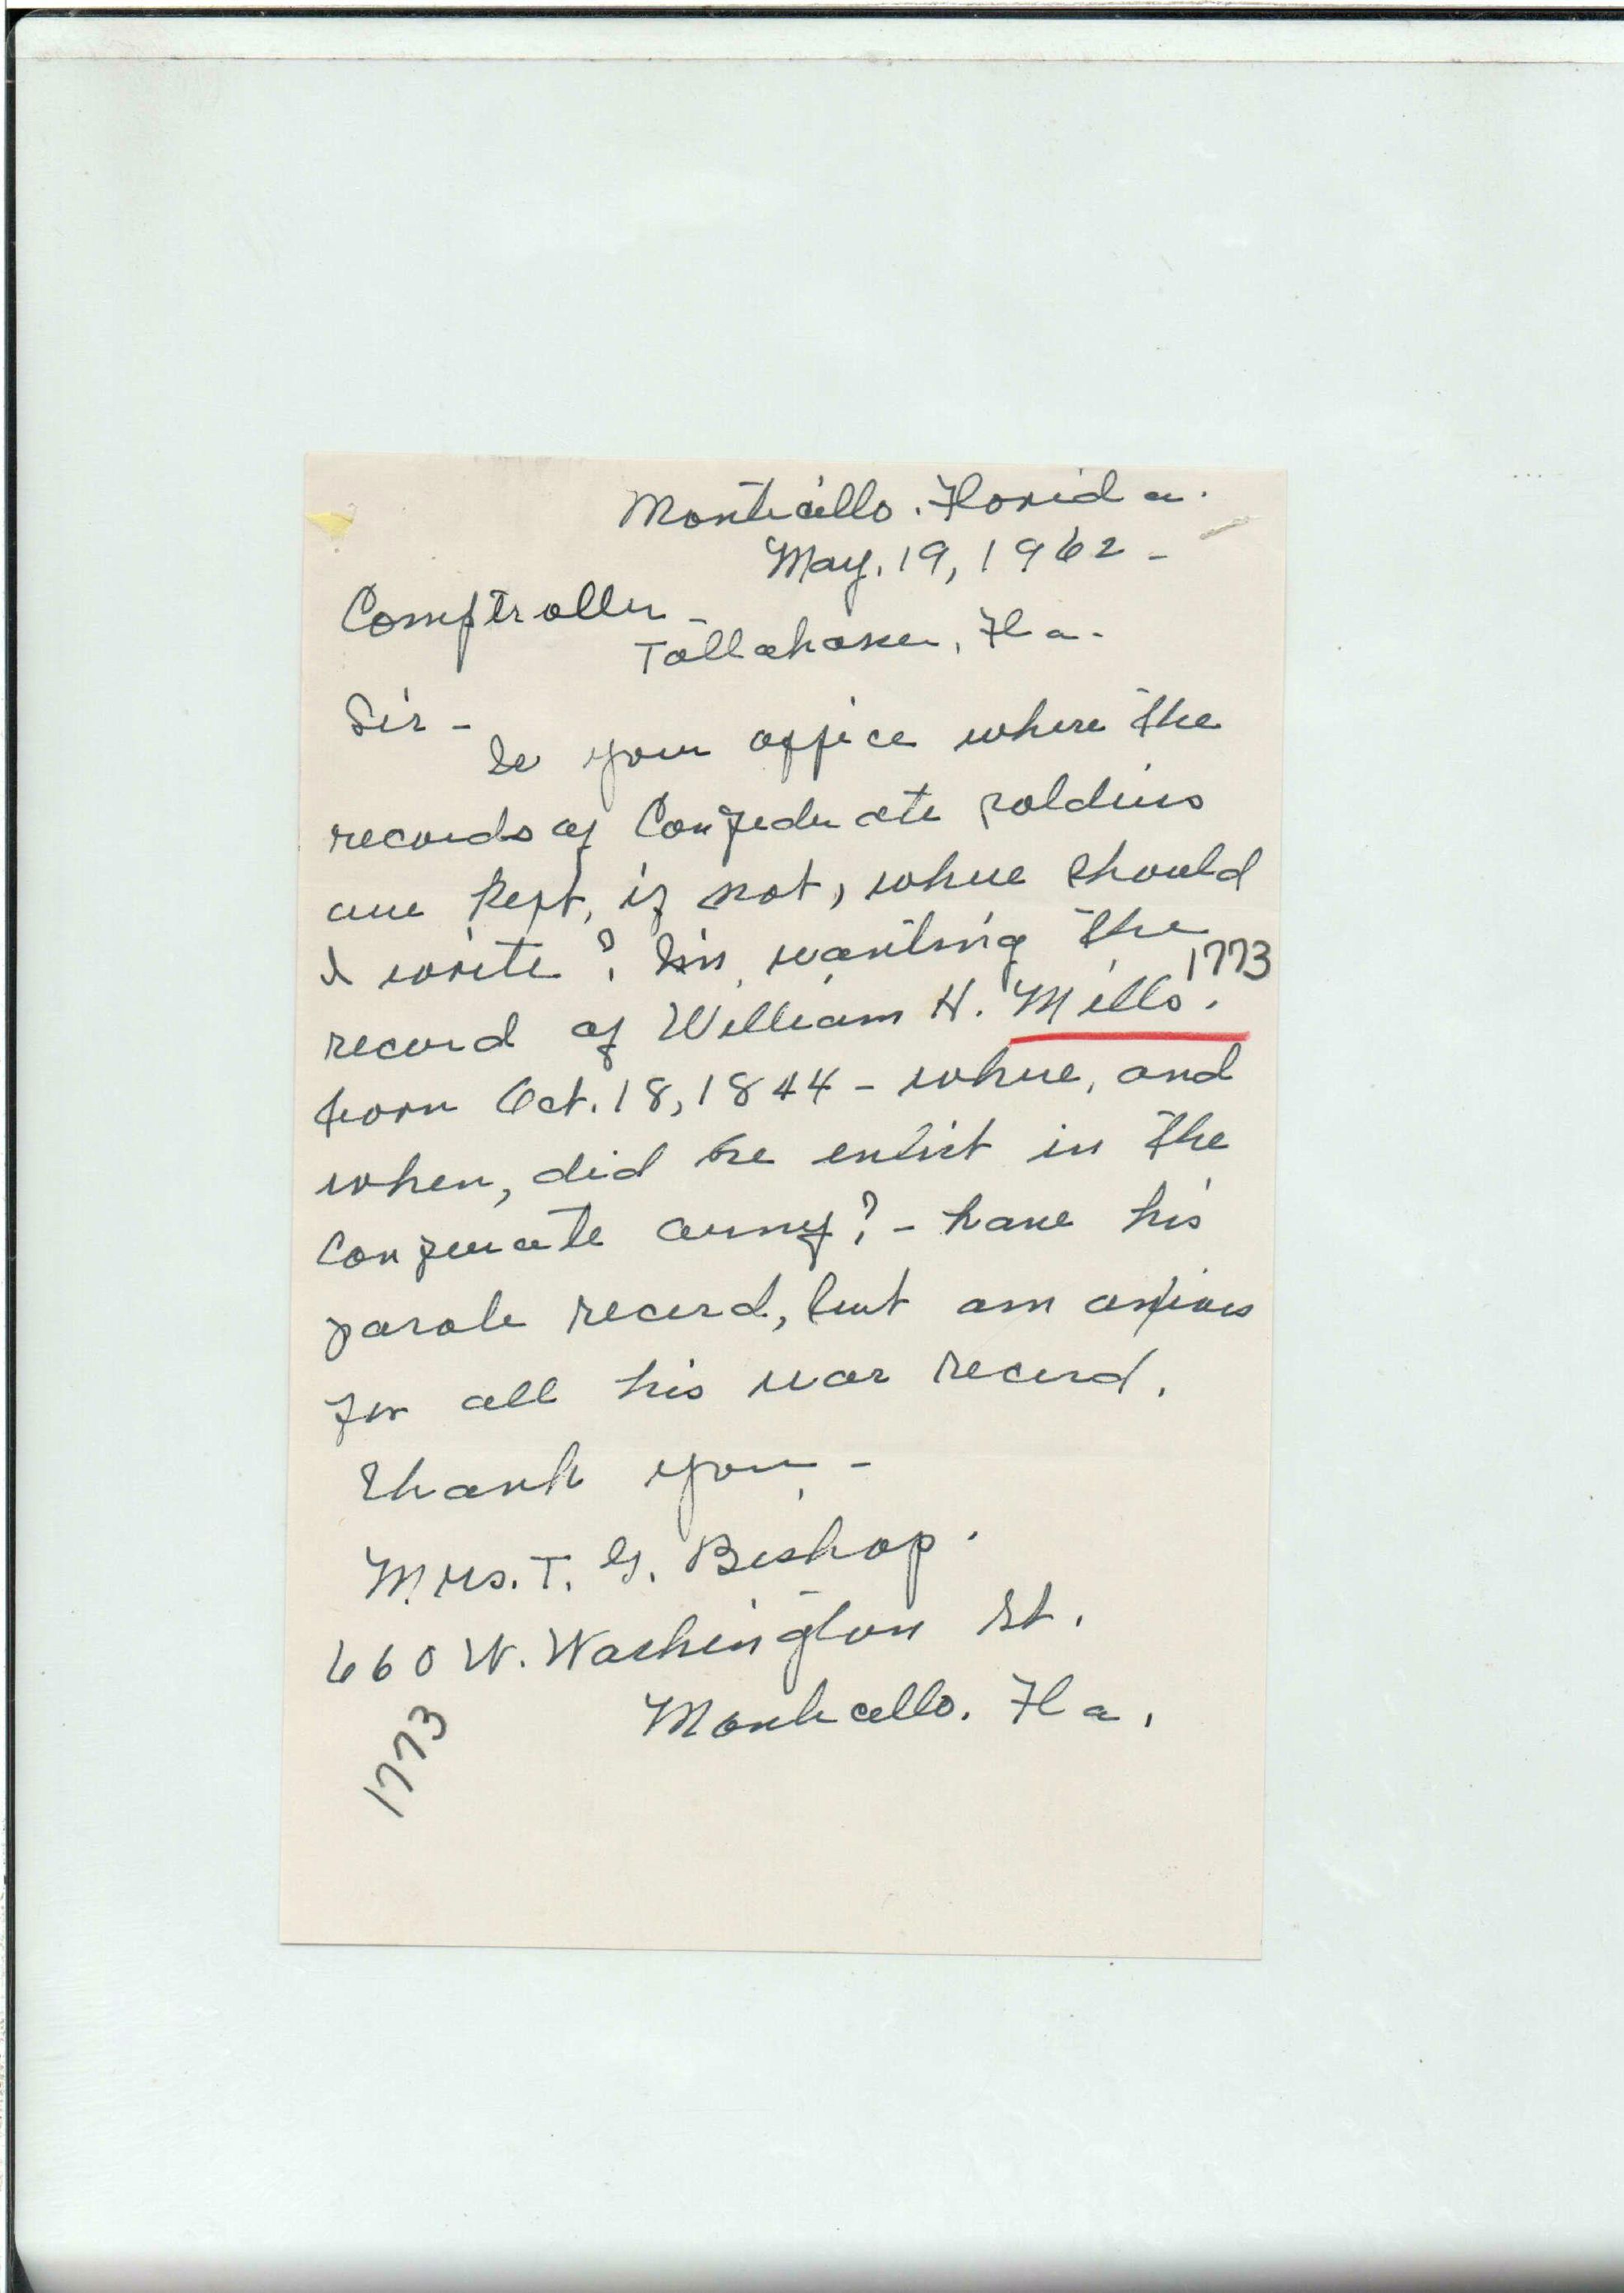 Monticello. Florida.
May. 19, 1962 -
Comptroller -
Tallahassee, Fla.
Sir -
Is your office where the
records of Confederate soldiers
are kept, if not, where should
I write? I'm wanting the
1773
record of William H. Mills.
born Oct. 18, 1844 - where, and
when, did he enlist in the
Confererate army? - have his
parole record, but am anxious
for all his war record.
Thank you -
Mrs. T. G. Bishop.
660 W. Washington St.
Monticello. Fla.
1773